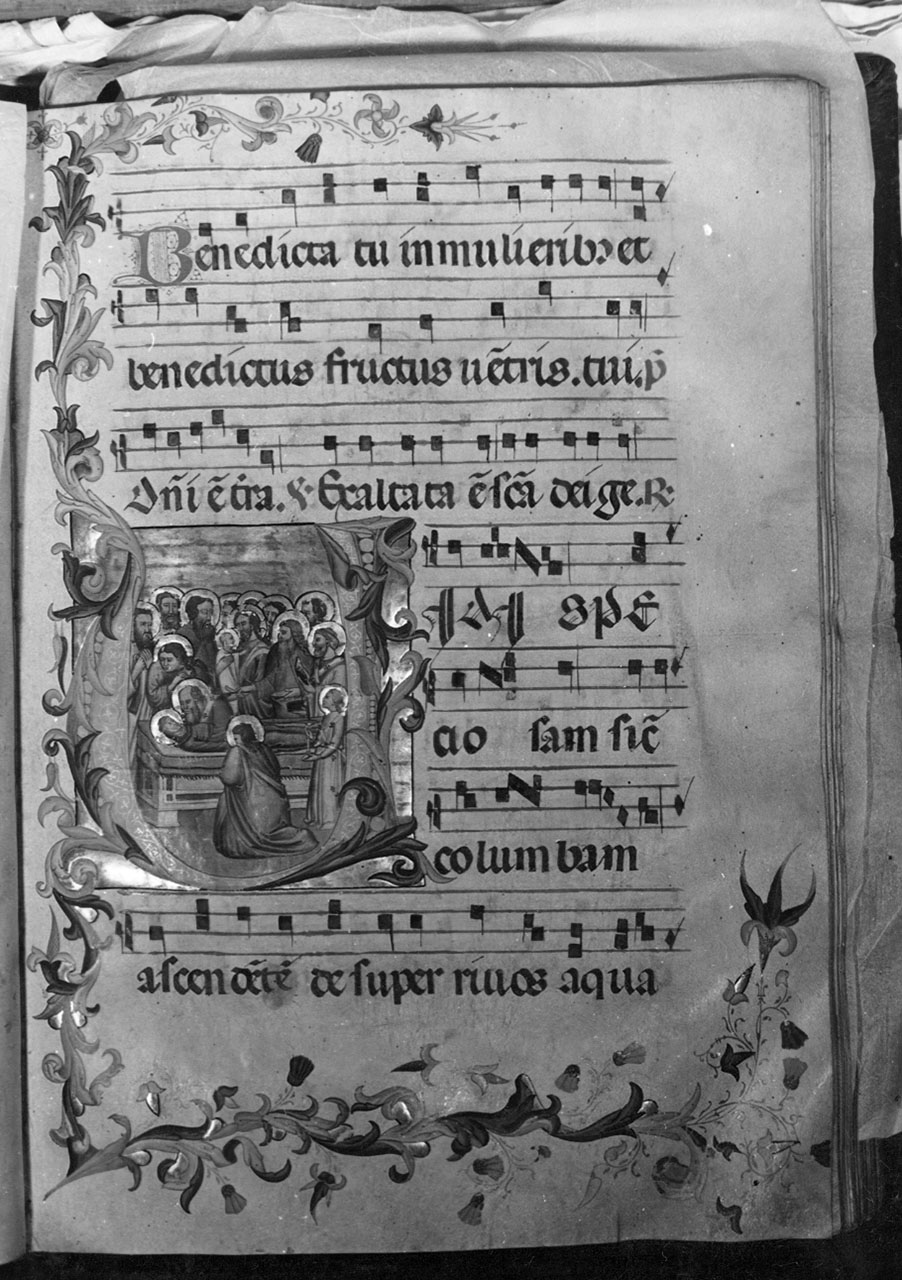 Benedicta tu in mulieribꝰ et
benedictus fructus uētris. tui. p̄
Oñi ēt̄ra. ℣ Exaltata ē sc̄a dei ge. ℟
VIDI SPE
cio sam sic̄
columbam
ascendētē desuper riuos aqua